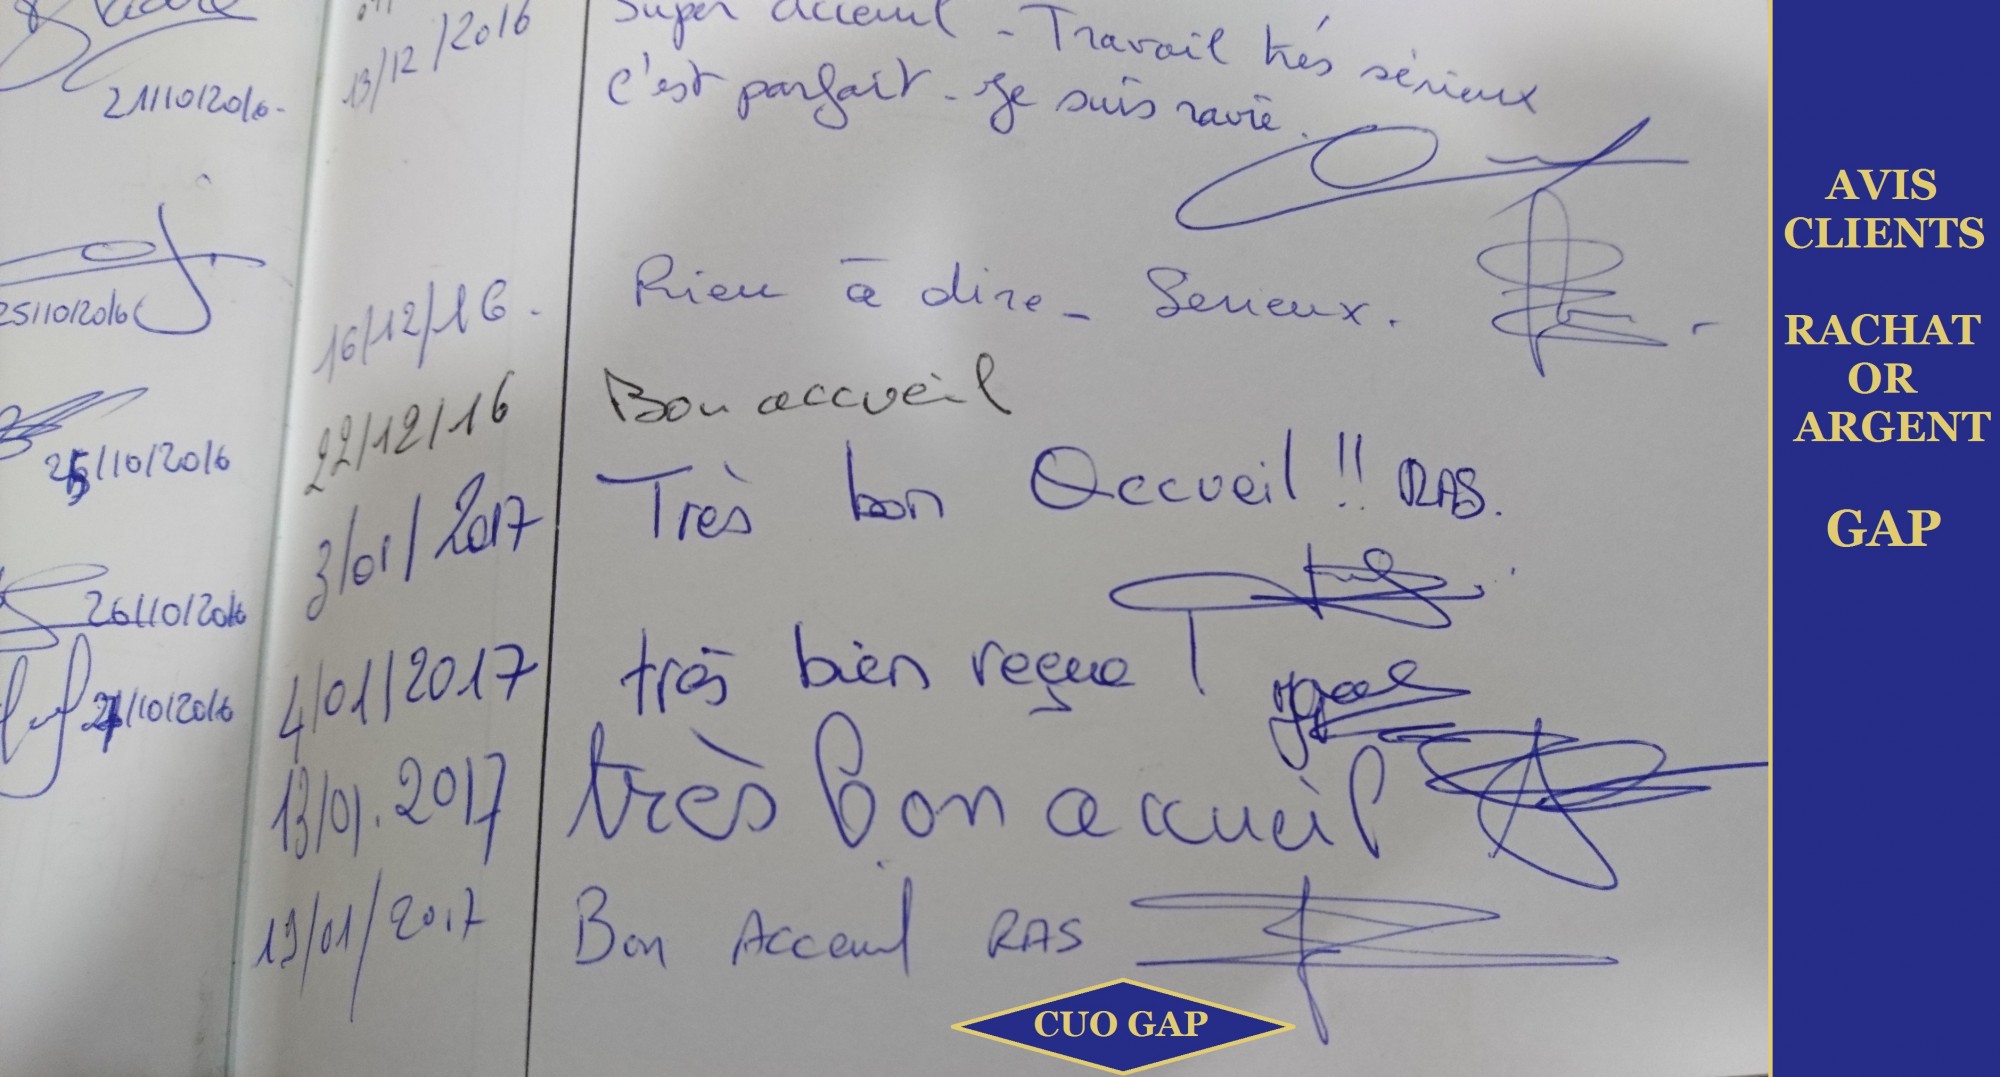 21/10/2016-
25/10/2016
25/10/2016
26/10/2016
27/10/2016
13/12/2016 Super acceuil - Travail très sérieux
c'est parfait - Je suis ravie.
16/12/16. Rien à dire - Serieux.
22/12/16 Bon accueil
3/01/2017 Très bon Accueil !! RAS.
4/01/2017 très bien reçue !
13/01.2017 très bon accueil
19/01/2017 Bon Acceuil RAS
CUO GAP
AVIS
CLIENTS
RACHAT
OR
ARGENT
GAP